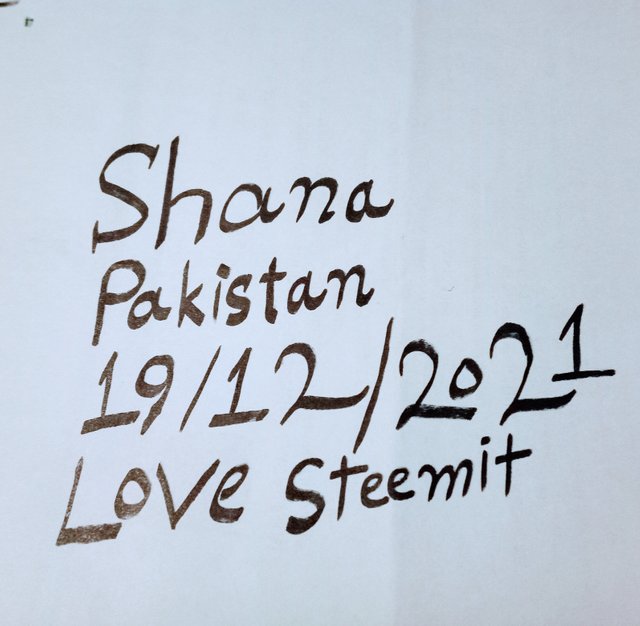 Shana
Pakistan
19/12/2021
Love Steemit